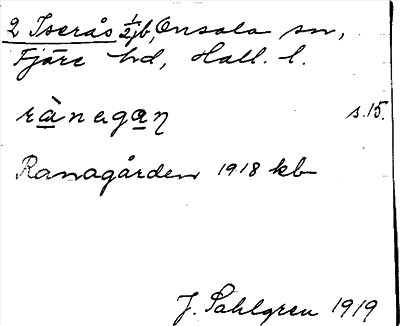 2 Iserås 1/2 jb, Onsala sn,
Fjäre hd, Hall. l.
rànagan s. 15.
Ranagården 1918 kb
J. Sahlgren 1919